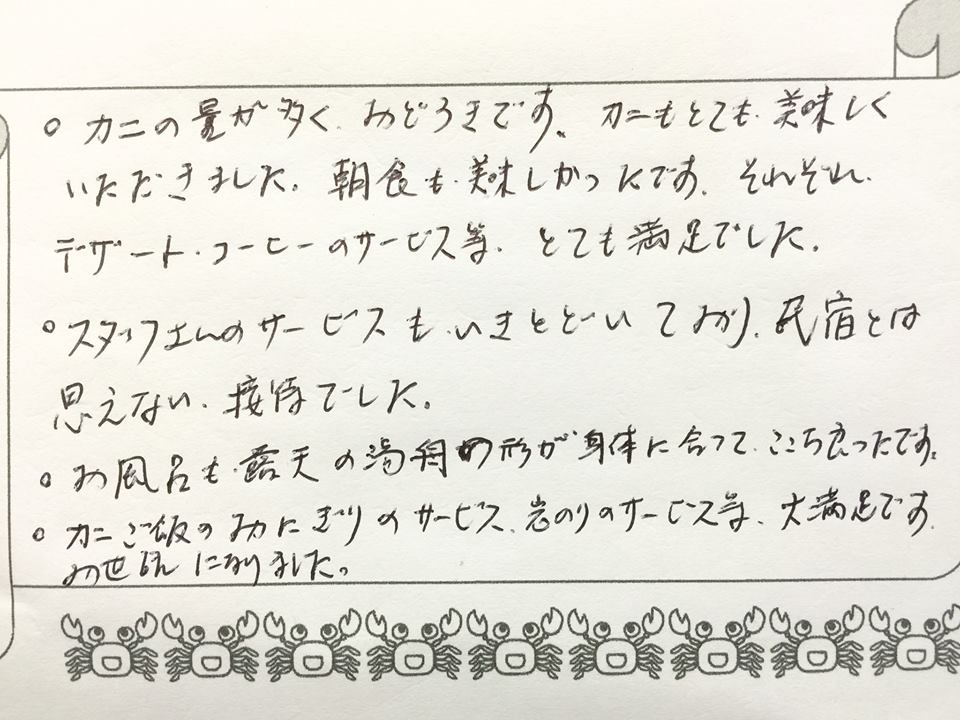 ○ カニの量が多く、おどろきです。カニもとても美味しく
いただきました。朝食も美味しかったです。それぞれ、
デザート・コーヒーのサービス等、とても満足でした。
○ スタッフさんのサービスも、いきとどいており、民宿とは
思えない、接待でした。
○ お風呂も露天の湯舟の形が身体に合って、ここち良ったです。
○ カニご飯のおにぎりのサービス、岩のりのサービス等、大満足です。
お世話になりました。